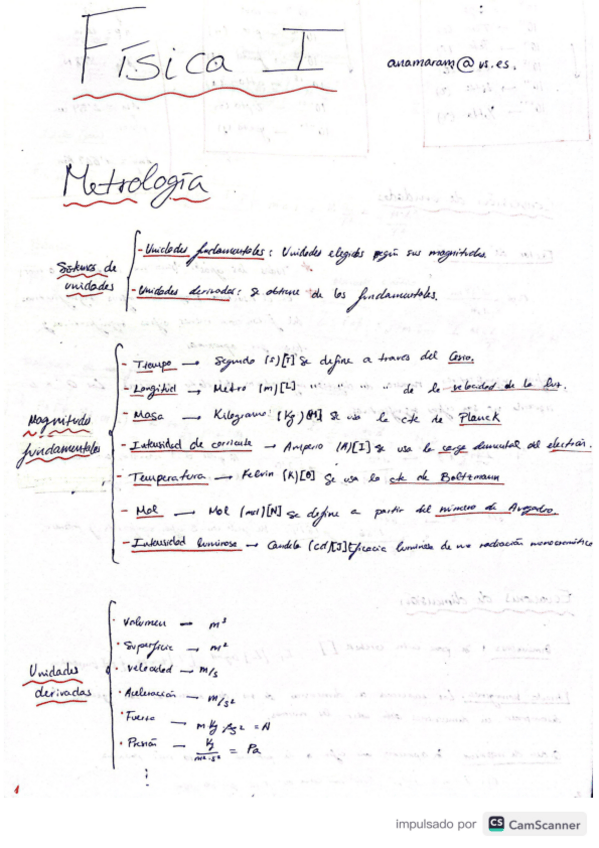 Física I
anamaram@us.es.
Metrología
Sistemas de unidades
- Unidades fundamentales: Unidades elegidas según sus magnitudes.
- Unidades derivadas: Se obtiene de las fundamentales.
Magnitudes fundamentales
- Tiempo → Segundo (s)[T] Se define a traves del Cesio.
- Longitud → Metro (m)[L] " " " " de la velocidad de la luz.
- Masa → Kilogramo (Kg)[M] Se usa la cte de Planck
- Intensidad de corriente → Amperio (A)[I] Se usa la carga elemental del electrón.
- Temperatura → Kelvin (K)[θ] Se usa la cte de Boltzmann
- Mol → Mol (mol)[N] Se define a partir del número de Avogadro.
- Intensidad luminosa → Candela (cd)[J] Eficacia luminosa de una radiación monocromática
Unidades derivadas
· Volumen → m³
· Superficie → m²
· Velocidad → m/s
· Aceleración → m/s²
· Fuerza → m Kg/s² = N
· Presión → Kg/m·s² = Pa
⋮
1
impulsado por CS CamScanner